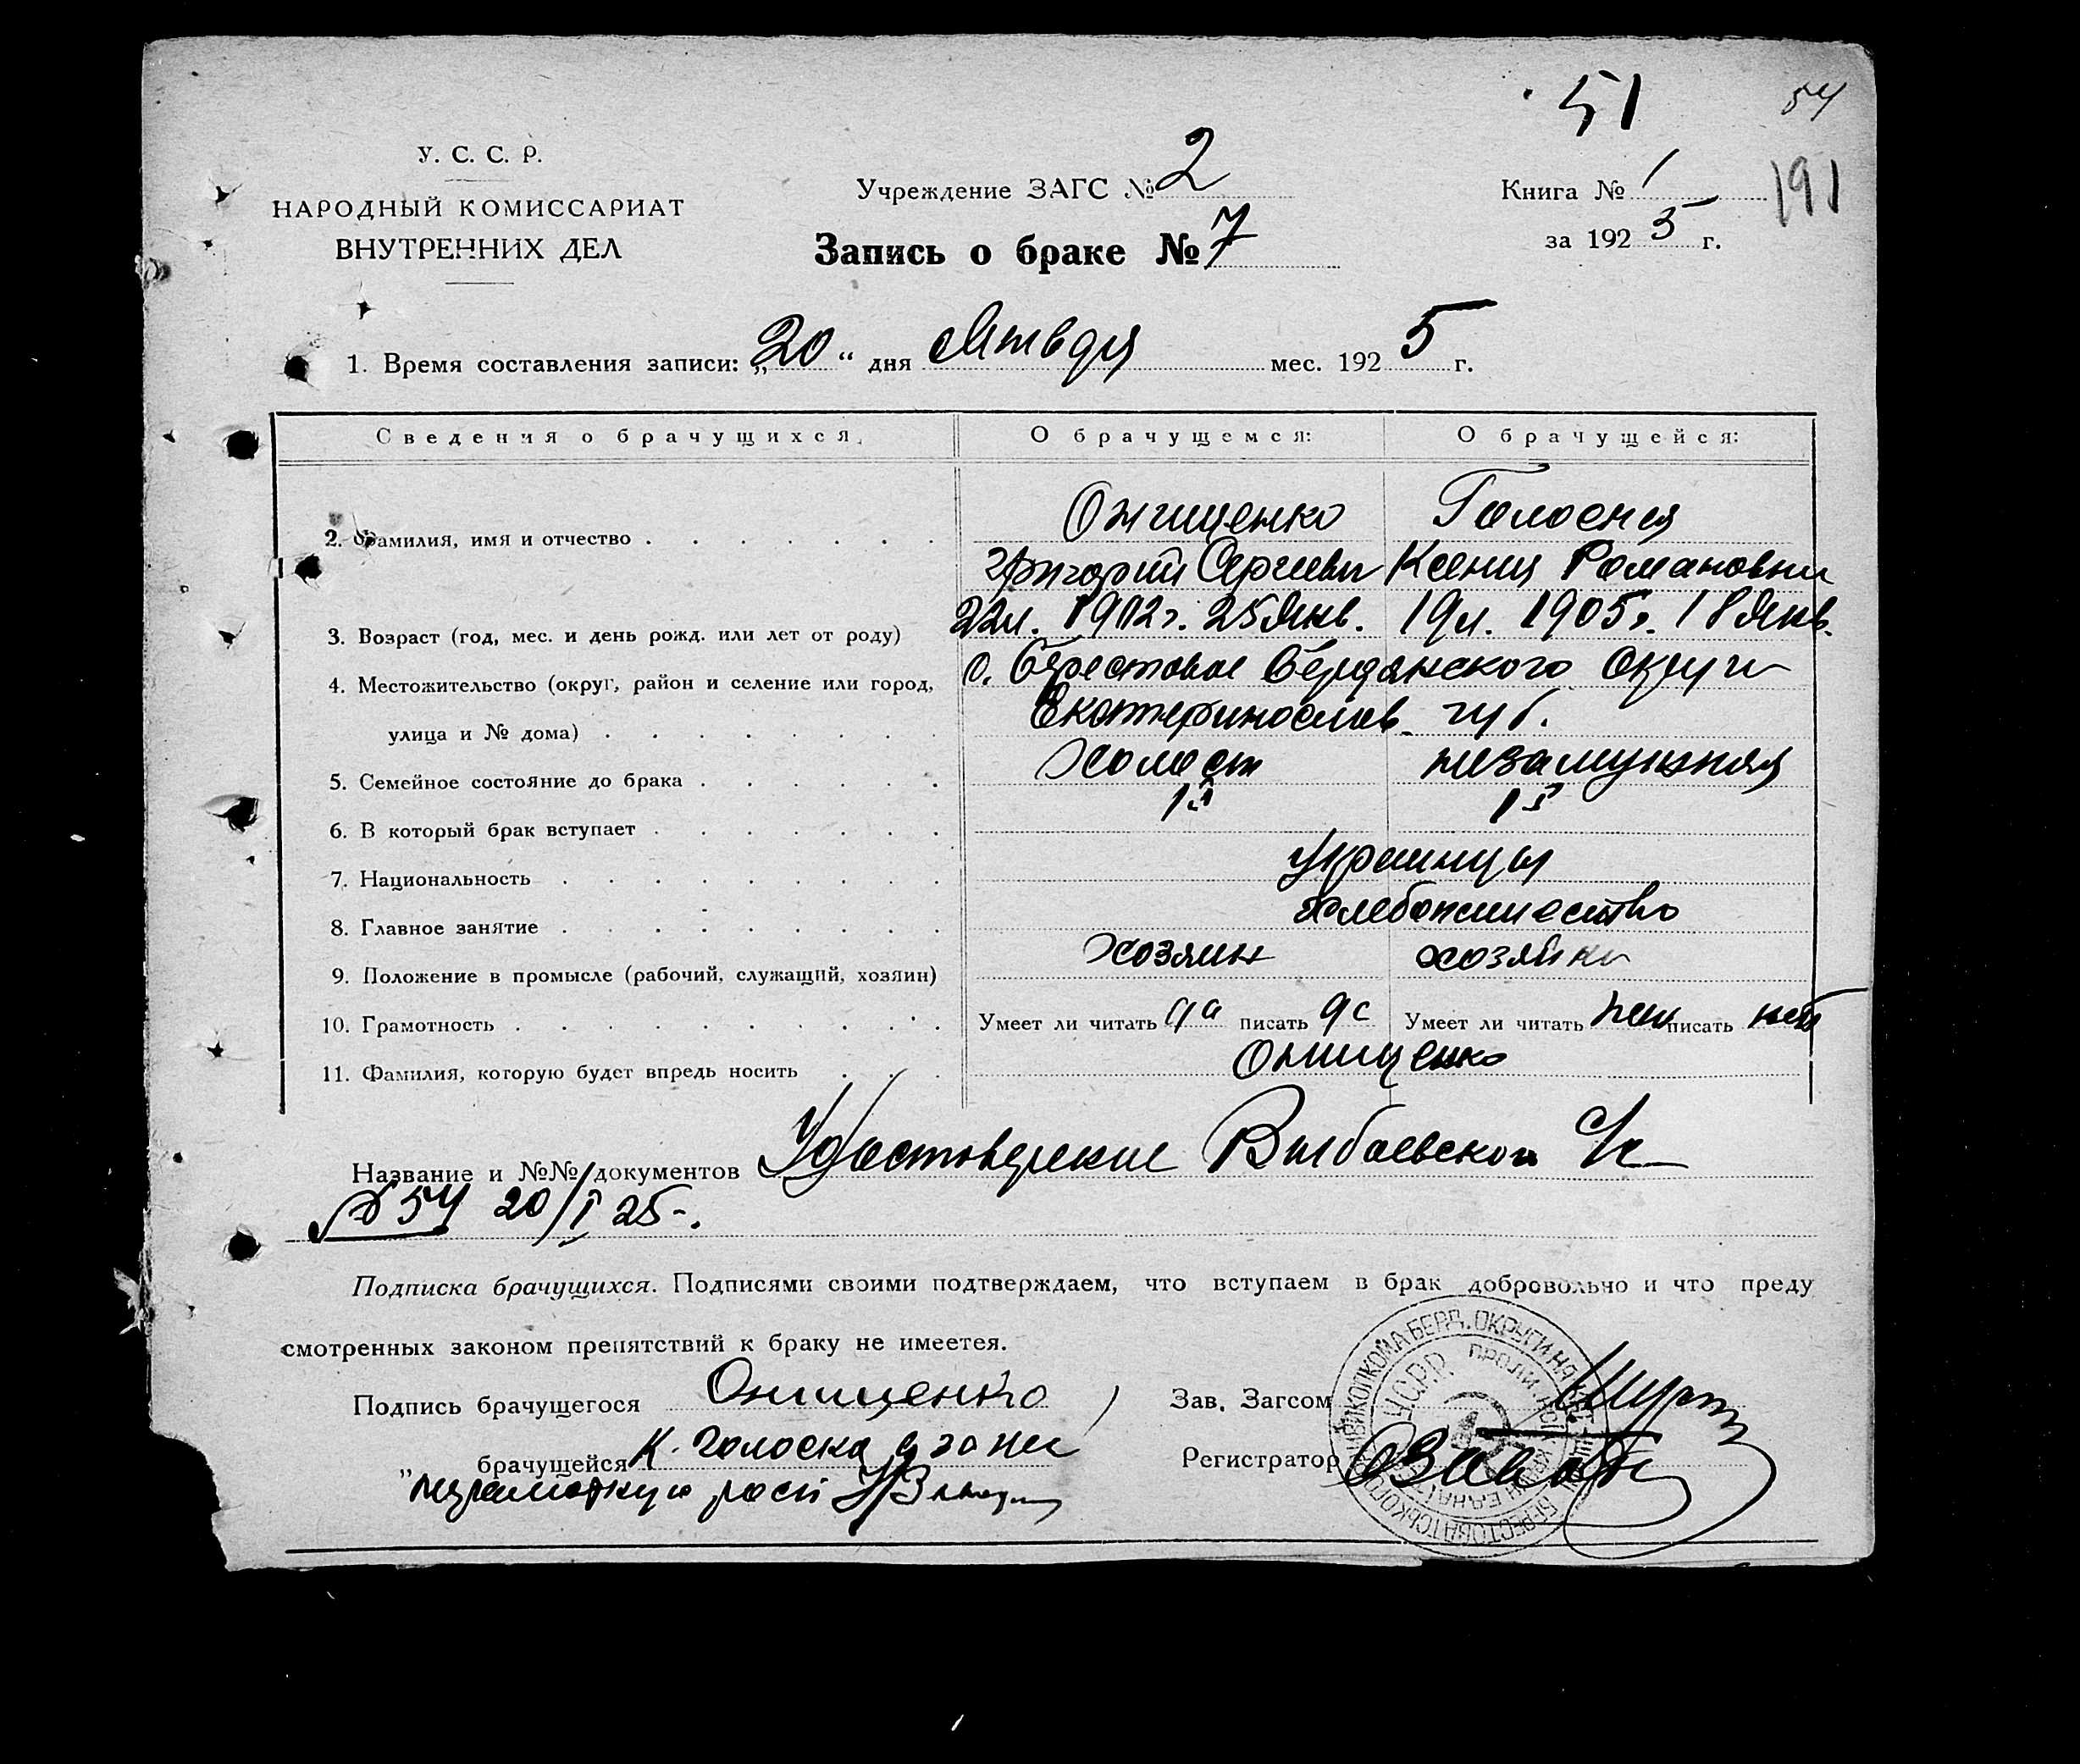 51 54
191
У. С. С. Р.
НАРОДНЫЙ КОМИССАРИАТ
ВНУТРЕННИХ ДЕЛ
Учреждение ЗАГС № 2
Запись о браке № 7
Книга № 1
за 1925 г.
1. Время составления записи: „20“ дня Января мес. 1925 г.
Сведения о брачущихся. О брачущемся: О брачущейся:
Онищенко Голосная
2. Фамилия, имя и отчество
Григорий Сергеевич Ксения Романовна
3. Возраст (год, мес. и день рожд. или лет от роду) 22 л. 1902 г. 25 Янв. 19 л. 1905 г. 18 Янв.
4. Местожительство (округ, район и селение или город, с. Берестовое Бердянского Округа
улица и № дома) Екатеринослав. губ.
5. Семейное состояние до брака Холост незамужняя
6. В который брак вступает 1й 1й
7. Национальность Украинцы
8. Главное занятие Хлебопашество
9. Положение в промысле (рабочий, служащий, хозяин) хозяин хозяйка
10. Грамотность Умеет ли читать да писать да Умеет ли читать нет писать нет
11. Фамилия, которую будет впредь носить Онищенко
Название и №№ документов Удостоверение
№ 54 20/I 25-.
Подписка брачущихся. Подписями своими подтверждаем, что вступаем в брак добровольно и что преду
смотренных законом препятствий к браку не имеетея.
Подпись брачущегося Онищенко Зав. Загсом
„ брачущейся К. Голосна Регистратор
неграмотную
У.С.Р.Р.